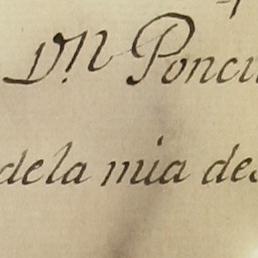 D.n Poncu
dela mia des